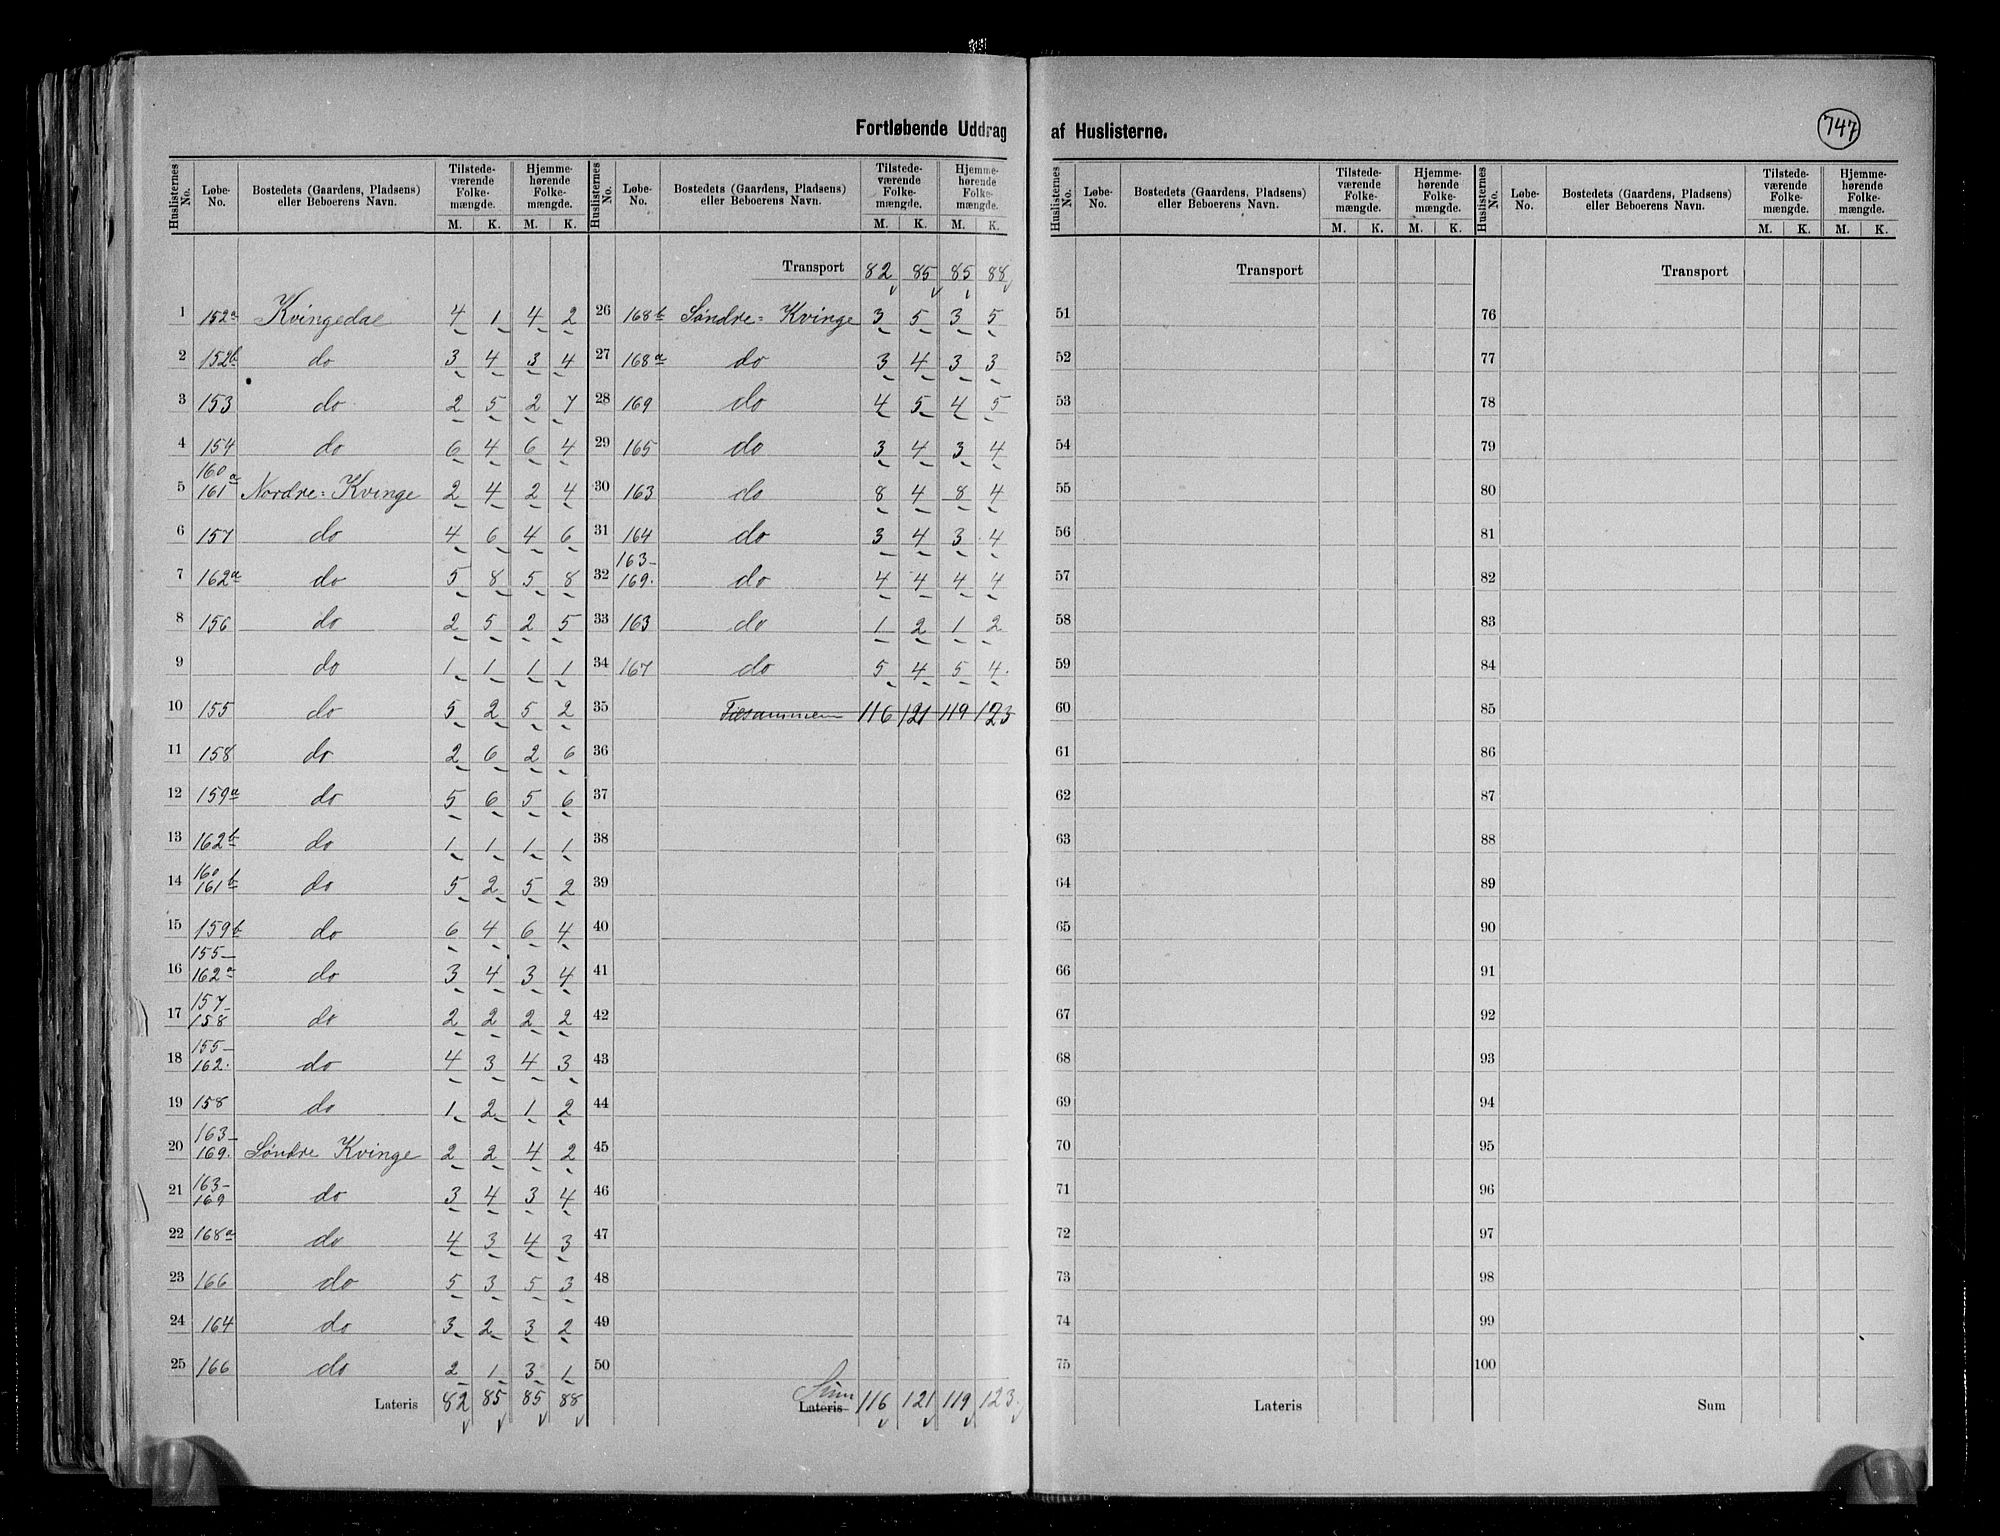 Fortløbende Uddrag af Huslisterne.
747
Huslisternes No. | Løbe-No. | Bostedets (Gaardens, Pladsens) eller Beboerens Navn. | Tilstedeværende Folkemængde. M. K. | Hjemmehørende Folkemængde. M. K.
1 152a Kvingedal 4 1 4 2
2 152b do 3 4 3 4
3 153 do 2 5 2 7
4 154 do 6 4 6 4
5 160 161a Nordre-Kvinge 2 4 2 4
6 157 do 4 6 4 6
7 162a do 5 8 5 8
8 156 do 2 5 2 5
9 do 1 1 1 1
10 155 do 5 2 5 2
11 158 do 2 6 2 6
12 159a do 5 6 5 6
13 162b do 1 1 1 1
14 160 161b do 5 2 5 2
15 159b do 6 4 6 4
16 155-162a do 3 4 3 4
17 157-158 do 2 2 2 2
18 155-162. do 4 3 4 3
19 158 do 1 2 1 2
20 163-169. Søndre Kvinge 2 2 4 2
21 163-169 do 3 4 3 4
22 168a do 4 3 4 3
23 166 do 5 3 5 3
24 164 do 3 2 3 2
25 166 do 2 1 3 1
Lateris 82 85 85 88
Huslisternes No. | Løbe-No. | Bostedets (Gaardens, Pladsens) eller Beboerens Navn. | Tilstedeværende Folkemængde. M. K. | Hjemmehørende Folkemængde. M. K.
Transport 82 85 85 88
26 168b Søndre-Kvinge 3 5 3 5
27 168a do 3 4 3 3
28 169 do 4 5 4 5
29 165 do 3 4 3 4
30 163 do 8 4 8 4
31 164 do 3 4 3 4
32 163-169. do 4 4 4 4
33 163 do 1 2 1 2
34 167 do 5 4 5 4.
35 Tilsammen 116 121 119 123
36
37
38
39
40
41
42
43
44
45
46
47
48
49
50
Sum
Lateris 116 121 119 123.
Huslisternes No. | Løbe-No. | Bostedets (Gaardens, Pladsens) eller Beboerens Navn. | Tilstedeværende Folkemængde. M. K. | Hjemmehørende Folkemængde. M. K.
Transport
51
52
53
54
55
56
57
58
59
60
61
62
63
64
65
66
67
68
69
70
71
72
73
74
75
Lateris
Huslisternes No. | Løbe-No. | Bostedets (Gaardens, Pladsens) eller Beboerens Navn. | Tilstedeværende Folkemængde. M. K. | Hjemmehørende Folkemængde. M. K.
Transport
76
77
78
79
80
81
82
83
84
85
86
87
88
89
90
91
92
93
94
95
96
97
98
99
100
Sum